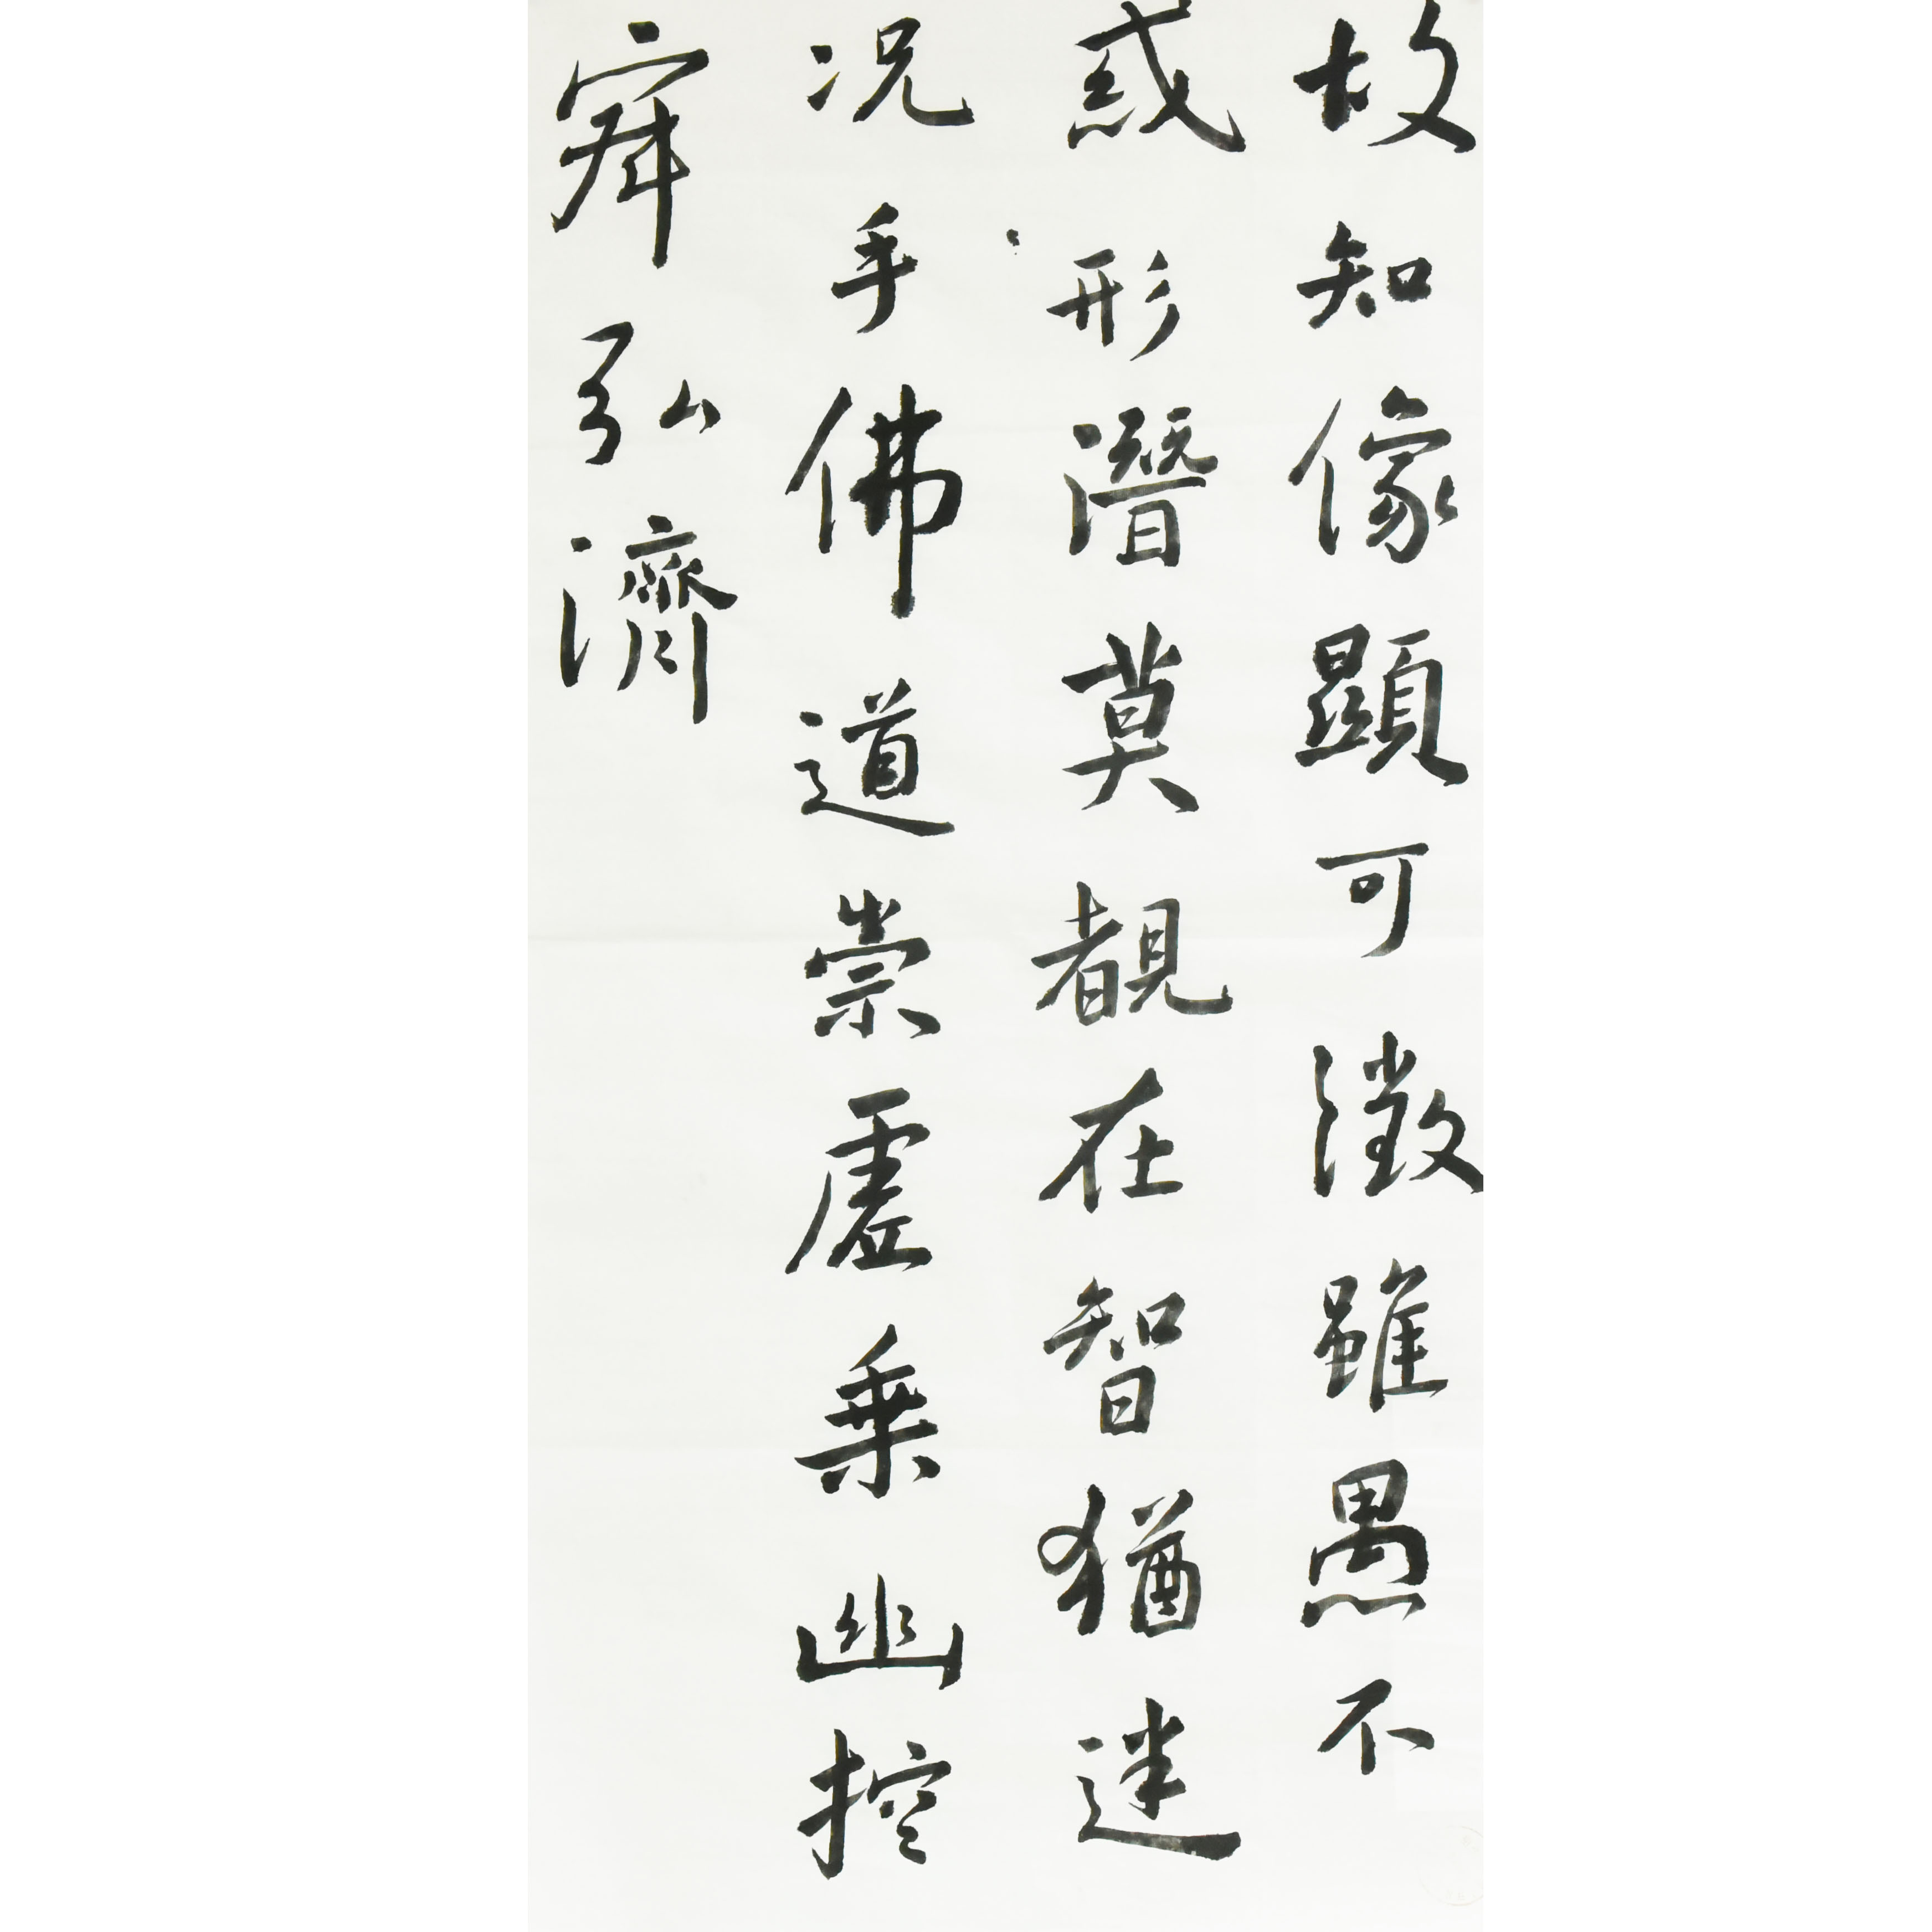 故知像顯可徵雖愚不
惑形潛莫覩在智猶迷
况乎佛道崇虛乘幽控
寂弘濟